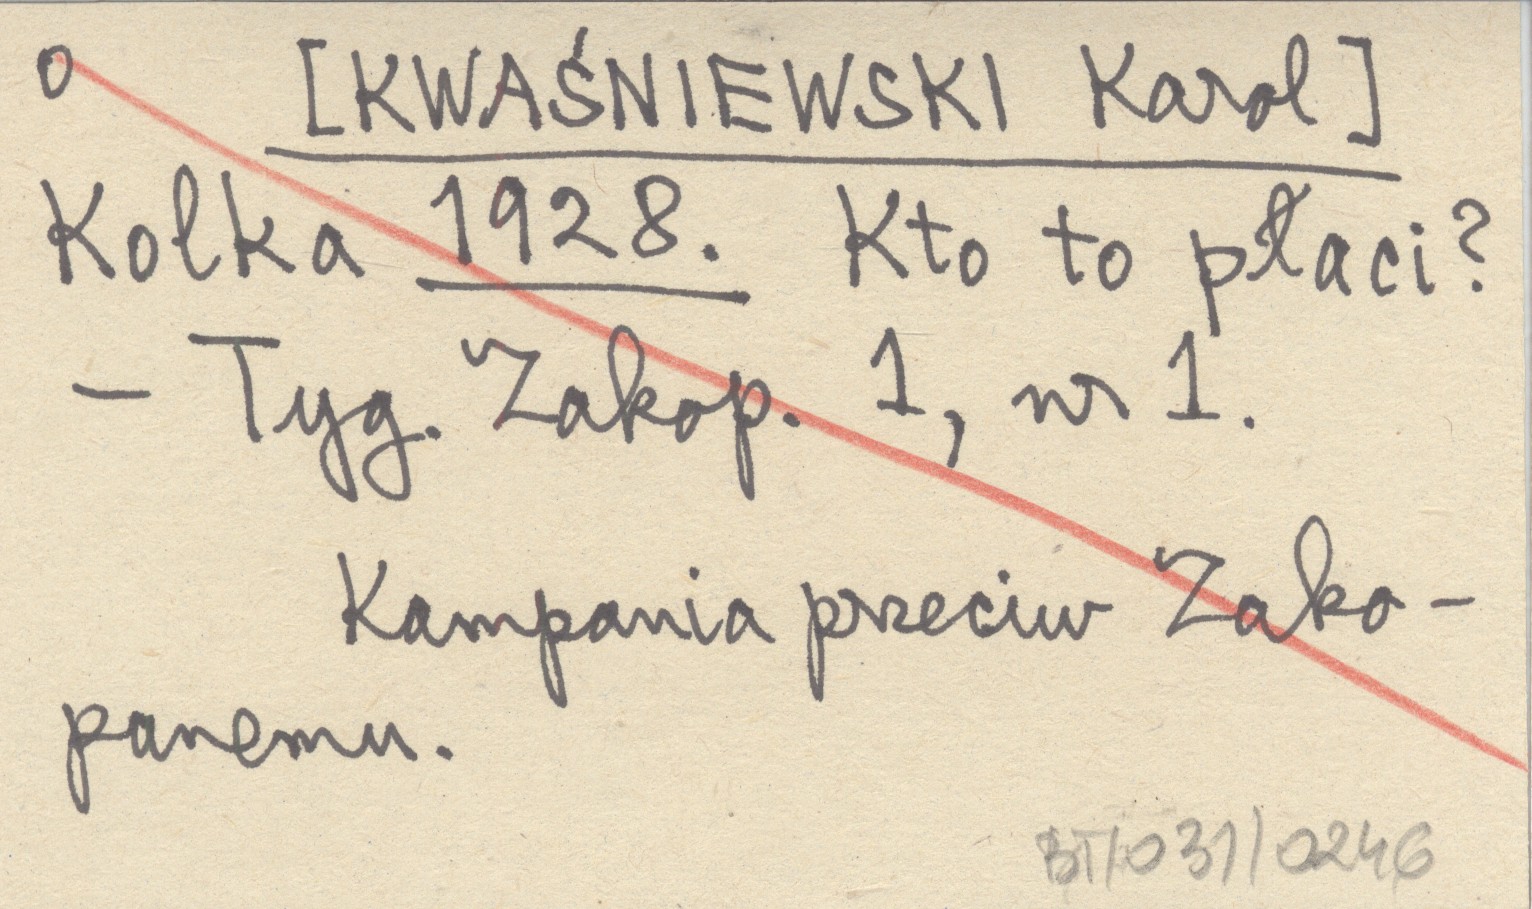 o [KWAŚNIEWSKI Karol]
Kolka 1928. Kto to płaci?
– Tyg. Zakop. 1, nr 1.
Kampania przeciw Zako-
panemu.
BT/031/0246